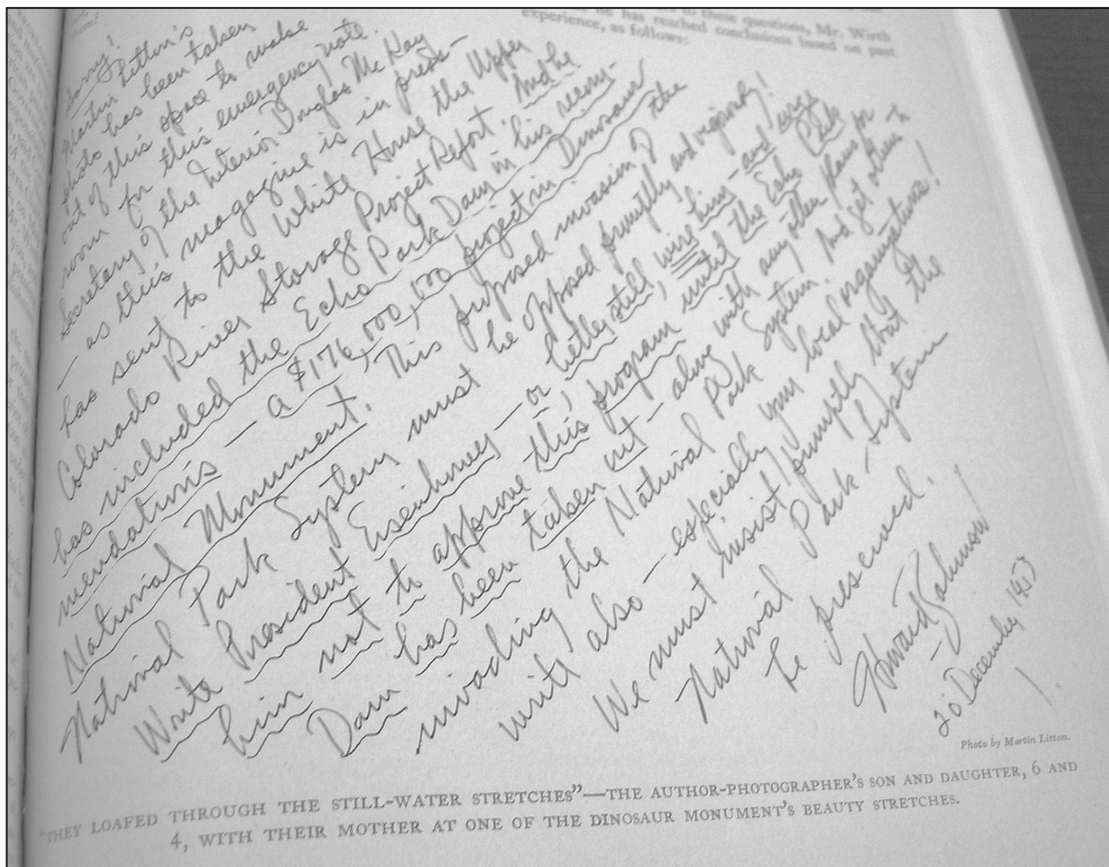 to these questions, Mr. Wirth
he has reached conclusions based on past
experience, as follows:
Sorry!
Martin Litton's
photo has been taken
out of this space to make
room for this emergency note.
Secretary of the Interior Douglas McKay
— as this magazine is in press —
has sent to the White House the Upper
Colorado River Storage Project Report. And he
has included the Echo Park Dam in his recom-
mendations — a $176,000,000 project in Dinosaur
National Monument. This proposed invasion of the
National Park System must be opposed promptly and vigorously!
Write President Eisenhower — or better still, wire him — and urge
him not to approve this program until the Echo Park
Dam has been taken out — along with any other plans for
invading the National Park System. And get others to
write also — especially your local organizations!
We must insist promptly that the
National Park System
be preserved.
Howard Zahniser
20 December 1953
Photo by Martin Litton.
"THEY LOAFED THROUGH THE STILL-WATER STRETCHES"—THE AUTHOR-PHOTOGRAPHER'S SON AND DAUGHTER, 6 AND
4, WITH THEIR MOTHER AT ONE OF THE DINOSAUR MONUMENT'S BEAUTY STRETCHES.